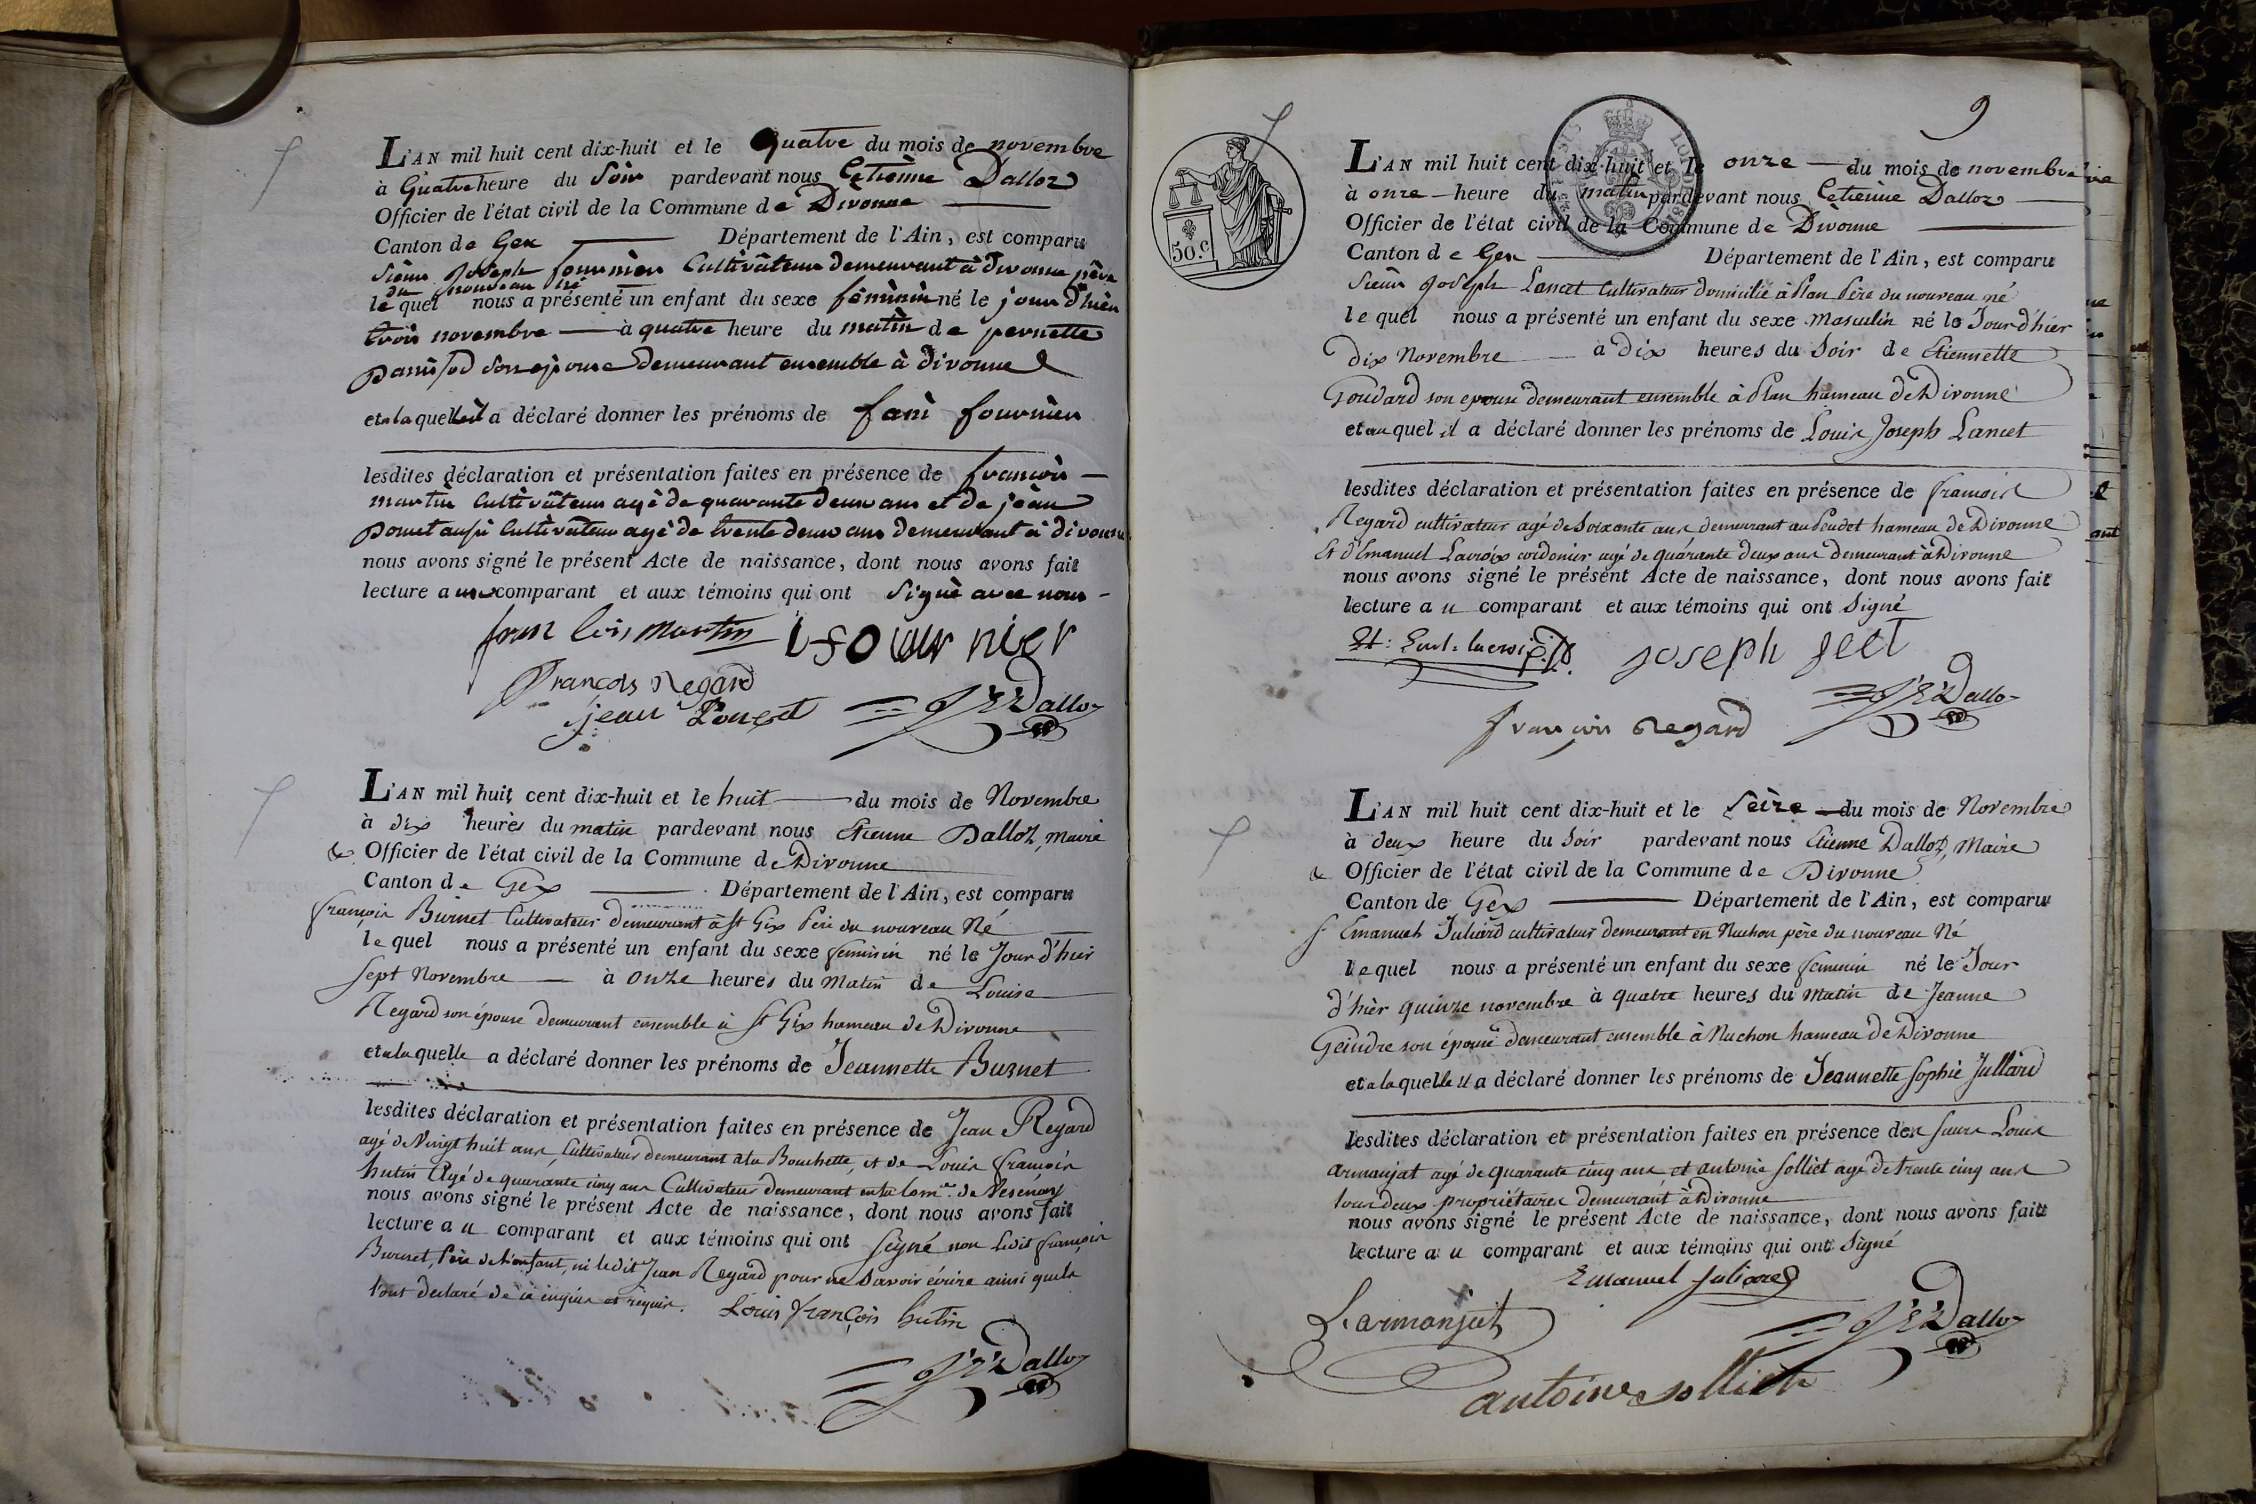 L'AN mil huit cent dix-huit et le quatre du mois de novembre
à Quatre heure du Soir pardevant nous Cetienne Dalloz
Officier de l'état civil de la Commune de Divonne
Canton de Gex Département de l'Ain, est comparu
Sieur Joseph fournier Cultivateur demeurant à divonne père
du nouveau né
lequel nous a présenté un enfant du sexe féminin né le jour d'hier
trois novembre à quatre heure du matin de pernette
son epouse demeurant ensemble à divonne
et a la quelle il a déclaré donner les prénoms de fani fournier
lesdites déclaration et présentation faites en présence de françois
martin Cultivateur agé de quarante deux ans et de jean
ponset aussi Cultivateur agé de trente deux ans demeurant à divonne
nous avons signé le présent Acte de naissance, dont nous avons fait
lecture au comparant et aux témoins qui ont Signé avec nous
fran cois martin fournier
François Regard
jean Ponset J E Dalloz
L'AN mil huit cent dix-huit et le huit du mois de Novembre
à dix heures du matin pardevant nous Etienne Dalloz, Maire
& Officier de l'état civil de la Commune de Divonne
Canton de Gex Département de l'Ain, est comparu
françois Burnet Cultivateur demeurant à St Gix Père du nouveau Né
lequel nous a présenté un enfant du sexe feminin né le Jour d'hier
Sept Novembre à onze heures du Matin de Louise
Regard son épouse demeurant ensemble à St Gix hameau de Divonne
et a la quelle a déclaré donner les prénoms de Jeannette Burnet
lesdites déclaration et présentation faites en présence de Jean Regard
agé de Vingt huit ans, Cultivateur demeurant a la Bouchette, et de Louis françois
hutin Agé de quarante cinq ans Cultivateur demeurant en la Com.ne de Vesenex
nous avons signé le présent Acte de naissance, dont nous avons fait
lecture au comparant et aux témoins qui ont signé non ledit françois
Burnet, Père de l'enfant, ni ledit Jean Regard pour ne Savoir écrire ainsi quils
l'ont declaré de ce enquis et requis. Louis françois hutin
J E Dalloz
9
50.C
L'AN mil huit cent dix-huit et le onze du mois de novembre
à onze heure du matin pardevant nous Cetienne Dalloz
Officier de l'état civil de la Commune de Divonne
Canton de Gex Département de l'Ain, est comparu
Sieur Joseph Lancet Cultivateur domicilié à Plan Père du nouveau né
lequel nous a présenté un enfant du sexe Masculin né le Jour d'hier
dix Novembre à dix heures du Soir de Etiennette
Goudard son epouse demeurant ensemble à Plan hameau de Divonne
et au quel il a déclaré donner les prénoms de Louis Joseph Lancet
lesdites déclaration et présentation faites en présence de françois
Regard cultivateur agé de Soixante ans demeurant au hameau de Divonne
Et d'Emanuel Lacroix cordonier agé de quarante deux ans demeurant à Divonne
nous avons signé le présent Acte de naissance, dont nous avons fait
lecture au comparant et aux témoins qui ont Signé
lacroix joseph
J E Dalloz
françois Regard
L'AN mil huit cent dix-huit et le Seize du mois de Novembre
à deux heure du Soir pardevant nous Etienne Dalloz, Maire
& Officier de l'état civil de la Commune de Divonne
Canton de Gex Département de l'Ain, est comparu
s.r Emanuel Juliard cultivateur demeurant en Nuchon père du nouveau Né
lequel nous a présenté un enfant du sexe feminin né le Jour
d'hier quinze novembre à quatre heures du Matin de Jeanne
Geindre son épouse demeurant ensemble à Nuchon hameau de Divonne
et a la quelle il a déclaré donner les prénoms de Jeannette Sophie Julliard
lesdites déclaration et présentation faites en présence des sieurs Louis
armanjat agé de quarante cinq ans et antoine Solliet agé de trente cinq ans
tous deux propriétaires demeurant à Divonne
nous avons signé le présent Acte de naissance, dont nous avons fait
lecture au comparant et aux témoins qui ont Signé
Emanuel Juliard
L. armanjat J E Dalloz
antoine solliet